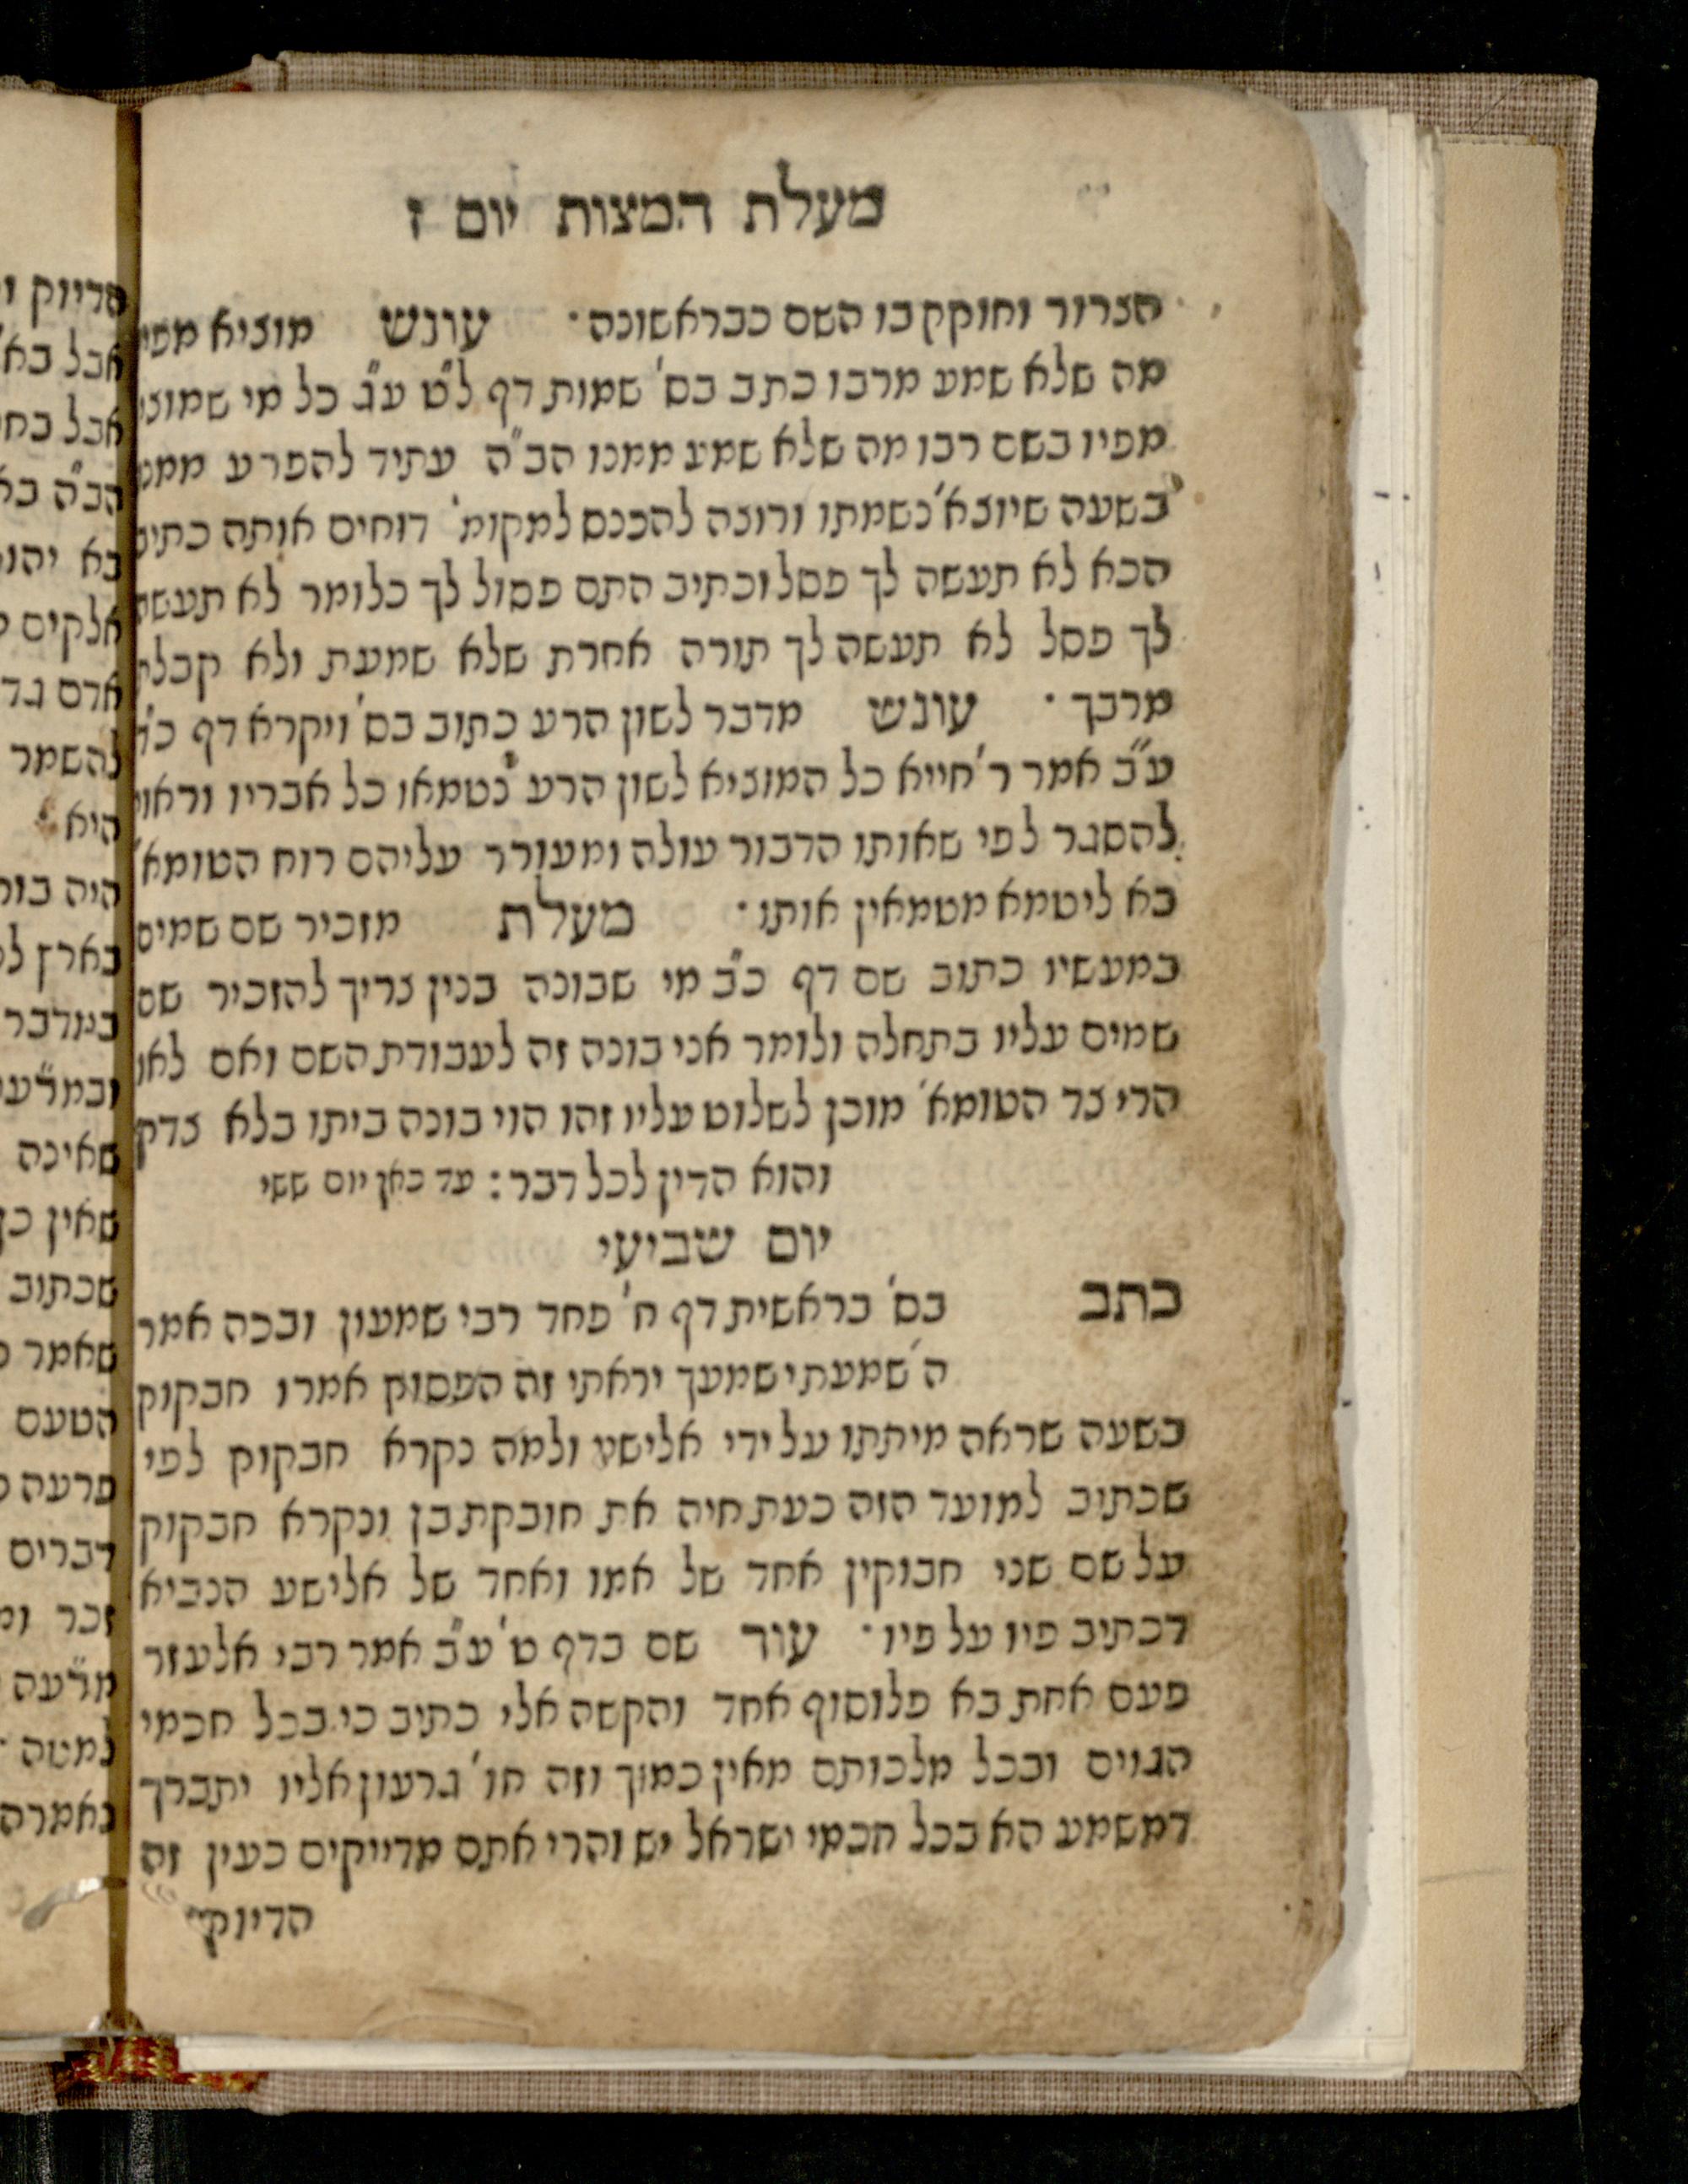 מעלת המצות יום ז
הצרור וחוקק בו השם כבראשונה· עונש מוציא מפיו
מה שלא שמע מרבו כתב בס' שמות דף ל"ט ע"ג כל מי שמוציא
מפיו בשם רבו מה שלא שמע ממנו הב"ה עתיד להפרע ממנו
בשעה שיוצא' נשמתו ורוצה להכנס למקומ' דוחים אותה כתיב
הכא לא תעשה לך פסל וכתיב התם פסול לך כלומר לא תעשה
לך פסל לא תעשה לך תורה אחרת שלא שמעת ולא קבלת
מרבך· עונש מדבר לשון הרע כתוב בס' ויקרא דף
ע"ב אמר ר' חייא כל המוציא לשון הרע נטמאו כל אבריו וראוי
להסגר לפי שאותו הדבור עולה ומעורר עליהם רוח הטומא'
בא ליטמא מטמאין אותו· מעלת מזכיר שם שמים
במעשיו כתוב שם דף כ"ב מי שבונה בנין צריך להזכיר שם
שמים עליו בתחלה ולומר אני בונה זה לעבודת השם ואם לאו
הרי צד הטומא' מוכן לשלוט עליו זהו הוי בונה ביתו בלא צדק
והוא הדין לכל דבר: עד כאן יום ששי
יום שביעי
כתב בס' בראשית דף ח' פחד רבי שמעון ובכה אמר
ה' שמעתי שמעך יראתי זה הפסוק אמרו חבקוק
בשעה שראה מיתתו על ידי אלישע ולמה נקרא חבקוק לפי
שכתוב למועד הזה כעת חיה את חובקת בן ונקרא חבקוק
על שם שני חבוקין אחד של אמו ואחד של אלישע הנביא
דכתיב פיו על פיו· עוד שם בדף ט' ע"ב אמר רבי אלעזר
פעם אחת בא פלוסוף אחד והקשה אלי כתיב כי בכל חכמי
הגוים ובכל מלכותם מאין כמוך וזה חו' גרעון אליו יתברך
דמשמע הא בכל חכמי ישראל יש והרי אתם מדייקים כעין זה
הדיוק